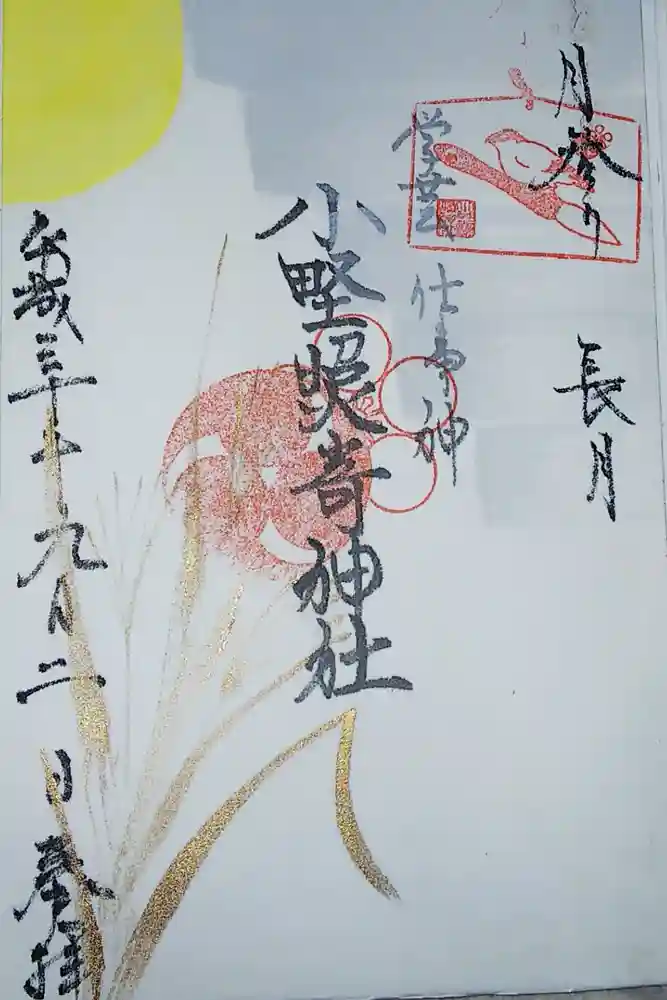 月参り
長月
学芸
仕事神
小野照崎神社
平成三十年九月二日 奉拝